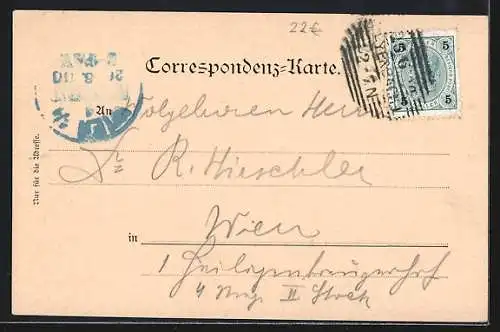 22€
Correspondenz-Karte.
An Wolgeboren Herrn
R. Hirschler
Wien
in
1 Heiligenkreuzerhof
4 II Stock
Nur für die Adresse.
5 5
5 5